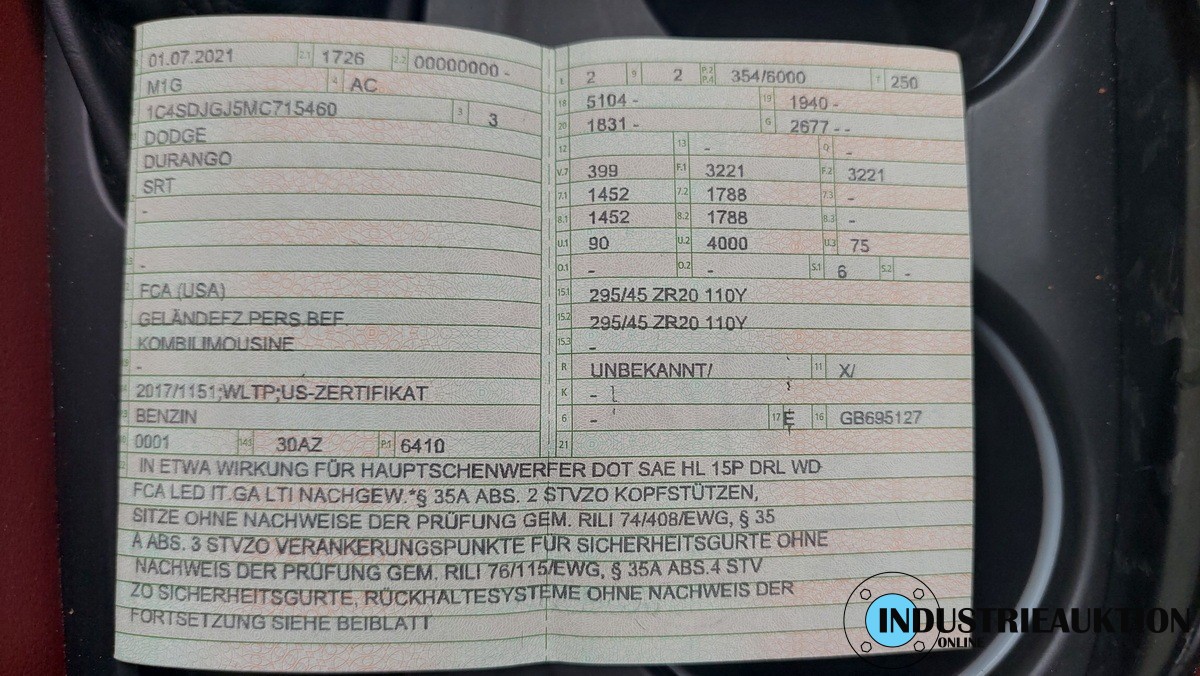 01.07.2021 2.1 1726 2.2 00000000 -
M1G 4 AC
1C4SDJGJ5MC715460 3 3
DODGE
DURANGO
SRT
-
-
FCA (USA)
GELÄNDEFZ.PERS.BEF
KOMBILIMOUSINE
-
2017/1151;WLTP;US-ZERTIFIKAT
BENZIN
0001 14.1 30AZ P.1 6410
L 2 9 2 P.2 P.4 354/6000 T 250
18 5104 - 19 1940 -
20 1831 - G 2677 - -
12 13 - Q -
V.7 399 F.1 3221 F.2 3221
7.1 1452 7.2 1788 7.3 -
8.1 1452 8.2 1788 8.3 -
U.1 90 U.2 4000 U.3 75
O.1 - O.2 - S.1 6 S.2 -
15.1 295/45 ZR20 110Y
15.2 295/45 ZR20 110Y
15.3 -
R UNBEKANNT/ 11 X/
K -
6 - 17 E 16 GB695127
21
IN ETWA WIRKUNG FÜR HAUPTSCHENWERFER DOT SAE HL 15P DRL WD
FCA LED IT.GA LTI NACHGEW.*§ 35A ABS. 2 STVZO KOPFSTÜTZEN,
SITZE OHNE NACHWEISE DER PRÜFUNG GEM. RILI 74/408/EWG, § 35
A ABS. 3 STVZO VERANKERUNGSPUNKTE FÜR SICHERHEITSGURTE OHNE
NACHWEIS DER PRÜFUNG GEM. RILI 76/115/EWG, § 35A ABS.4 STV
ZO SICHERHEITSGURTE, RÜCKHALTESYSTEME OHNE NACHWEIS DER
FORTSETZUNG SIEHE BEIBLATT
INDUSTRIEAUKTION
ONLINE